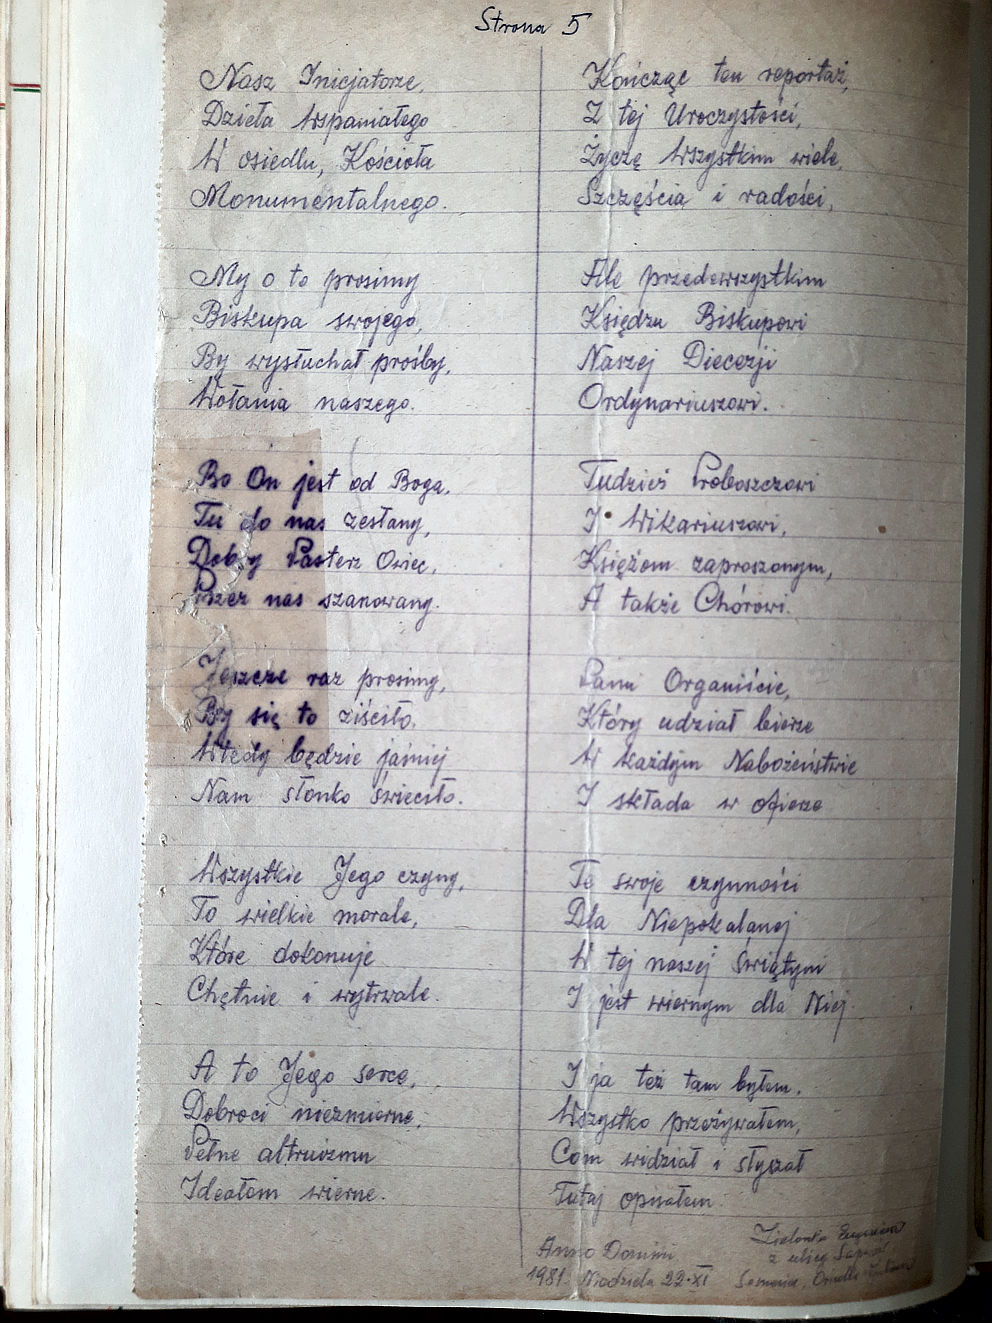 Strona 5
Nasz Inicjatorze,
Dzieła Wspaniałego
W osiedlu, Kościoła
Monumentalnego.
My o to prosimy
Biskupa swojego,
By wysłuchał prośby,
Wołania naszego.
Bo On jest od Boga,
Tu do nas zesłany,
Dobry Pasterz Owiec,
Przez nas szanowany.
Jeszcze raz prosimy,
By się to ziściło,
Wtedy będzie jaśniej
Nam słonko świeciło.
Wszystkie Jego czyny,
To wielkie morale,
Które dokonuje
Chętnie i wytrwale.
A to Jego serce,
Dobroci niezmierne,
Pełne altruizmu
Ideałom wierne.
Kończąc ten reportaż,
Z tej Uroczystości,
Życzę Wszystkim wiele,
Szczęścia i radości,
Ale przedewszystkim
Księdzu Biskupowi
Naszej Diecezji
Ordynariuszowi.
Tudzież Proboszczowi
I Wikariuszowi,
Księżom zaproszonym,
A także Chórowi.
Panu Organiście,
Który udział bierze
W każdym Nabożeństwie
I składa w ofierze
Te swoje czynności
Dla Niepokalanej
W tej naszej Świątyni
I jest wiernym dla Niej.
I ja też tam byłem,
Wszystko przeżywałem,
Com widział i słyszał
Tutaj opisałem.
Anno Domini
1981. Niedziela 22.XI
z ulicy